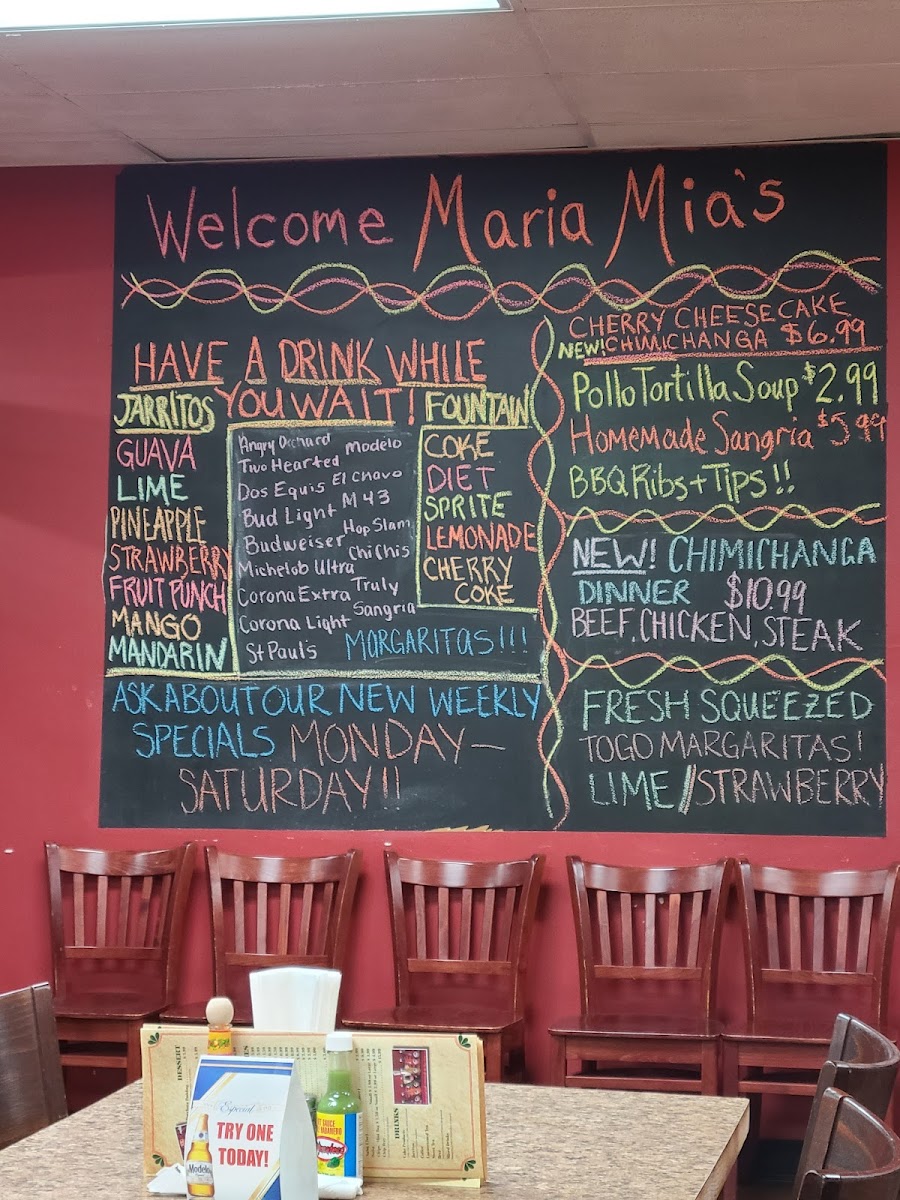 Welcome Maria Mia's
HAVE A DRINK WHILE
YOU WAIT!
JARRITOS
GUAVA
LIME
PINEAPPLE
STRAWBERRY
FRUIT PUNCH
MANGO
MANDARIN
Angry Orchard
Modelo
Two Hearted
Dos Equis
El Chavo
Bud Light
M 43
Budweiser
Hop Slam
Michelob Ultra
Chi Chis
Corona Extra
Truly
Corona Light
Sangria
St Pauls
MARGARITAS!!!
FOUNTAIN
COKE
DIET
SPRITE
LEMONADE
CHERRY
COKE
ASK ABOUT OUR NEW WEEKLY
SPECIALS MONDAY—
SATURDAY!!
CHERRY CHEESECAKE
NEW! CHIMICHANGA $6.99
Pollo Tortilla Soup $2.99
Homemade Sangria $5.99
BBQ Ribs + Tips!!
NEW! CHIMICHANGA
DINNER $10.99
BEEF, CHICKEN, STEAK
FRESH SQUEEZED
TOGO MARGARITAS!
LIME/STRAWBERRY
DESSERT
DRINKS
Especial
TRY ONE
TODAY!
Modelo